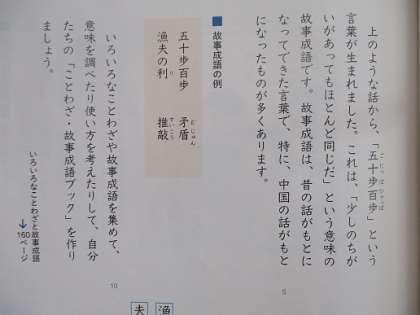 上のような話から、「五十歩百歩」という
言葉が生まれました。これは、「少しのちが
いがあってもほとんど同じだ」という意味の
故事成語です。故事成語は、昔の話がもとに
なってできた言葉で、特に、中国の話がもと
になったものが多くあります。
5
■ 故事成語の例
五十歩百歩 矛盾
漁夫の利 推敲
いろいろなことわざや故事成語を集めて、
意味を調べたり使い方を考えたりして、自分
たちの「ことわざ・故事成語ブック」を作り
ましょう。
10
いろいろなことわざと故事成語
→160ページ
漁
夫